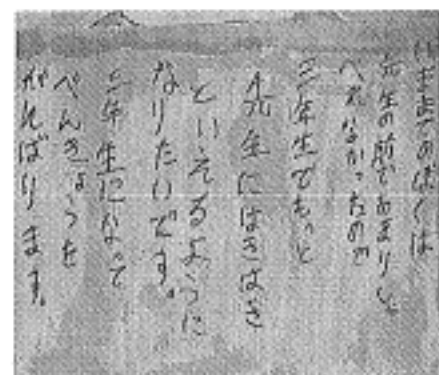 いままでのぼくは
先生の前であまりしゃ
べれなかったので
三年生でもっと
先生にはきはき
といえるように
なりたいです。
三年生になって
べんきょうを
がんばります。